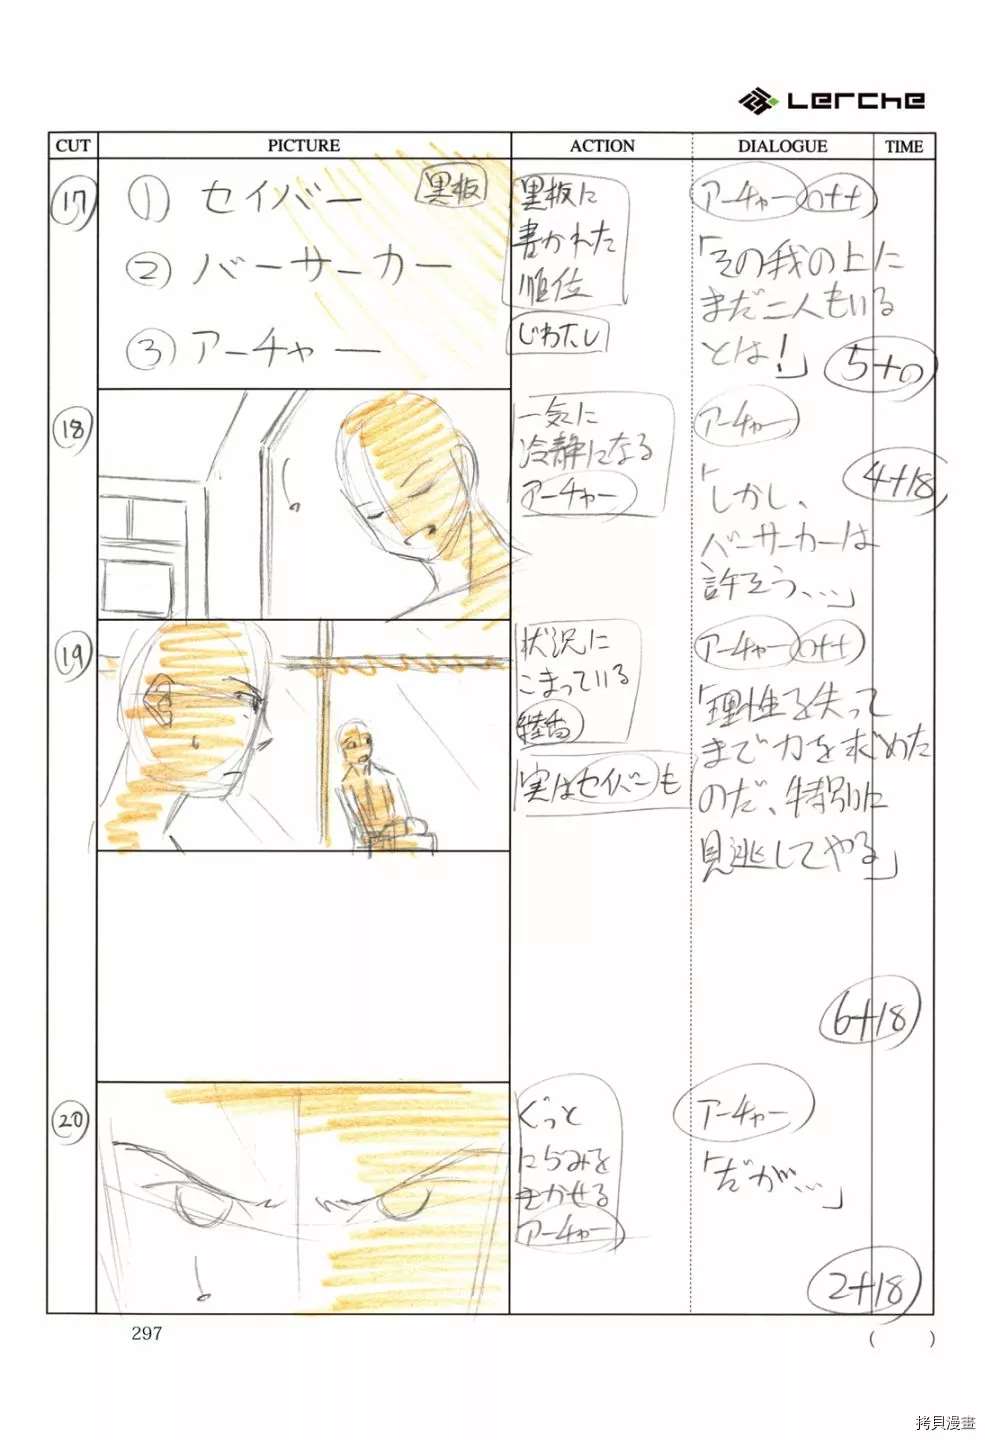 Lerche
CUT PICTURE ACTION DIALOGUE TIME
17
① セイバー
② バーサーカー
③ アーチャー
黒板
黒板に
書かれた
順位
じわTU
アーチャー off
「その我の上に
まだ二人もいる
とは!」
5+0
18
一気に
冷静になる
アーチャー
アーチャー
「しかし、
バーサーカーは
許そう、…」
4+18
19
状況に
こまっている
実はセイバーも
アーチャー off
「理性を失って
まで力を求めた
のだ、特別に
見逃してやる」
6+18
20
ぐっと
にらみを
きかせる
アーチャー
アーチャー
「だが…」
2+18
297
( )
拷貝漫畫